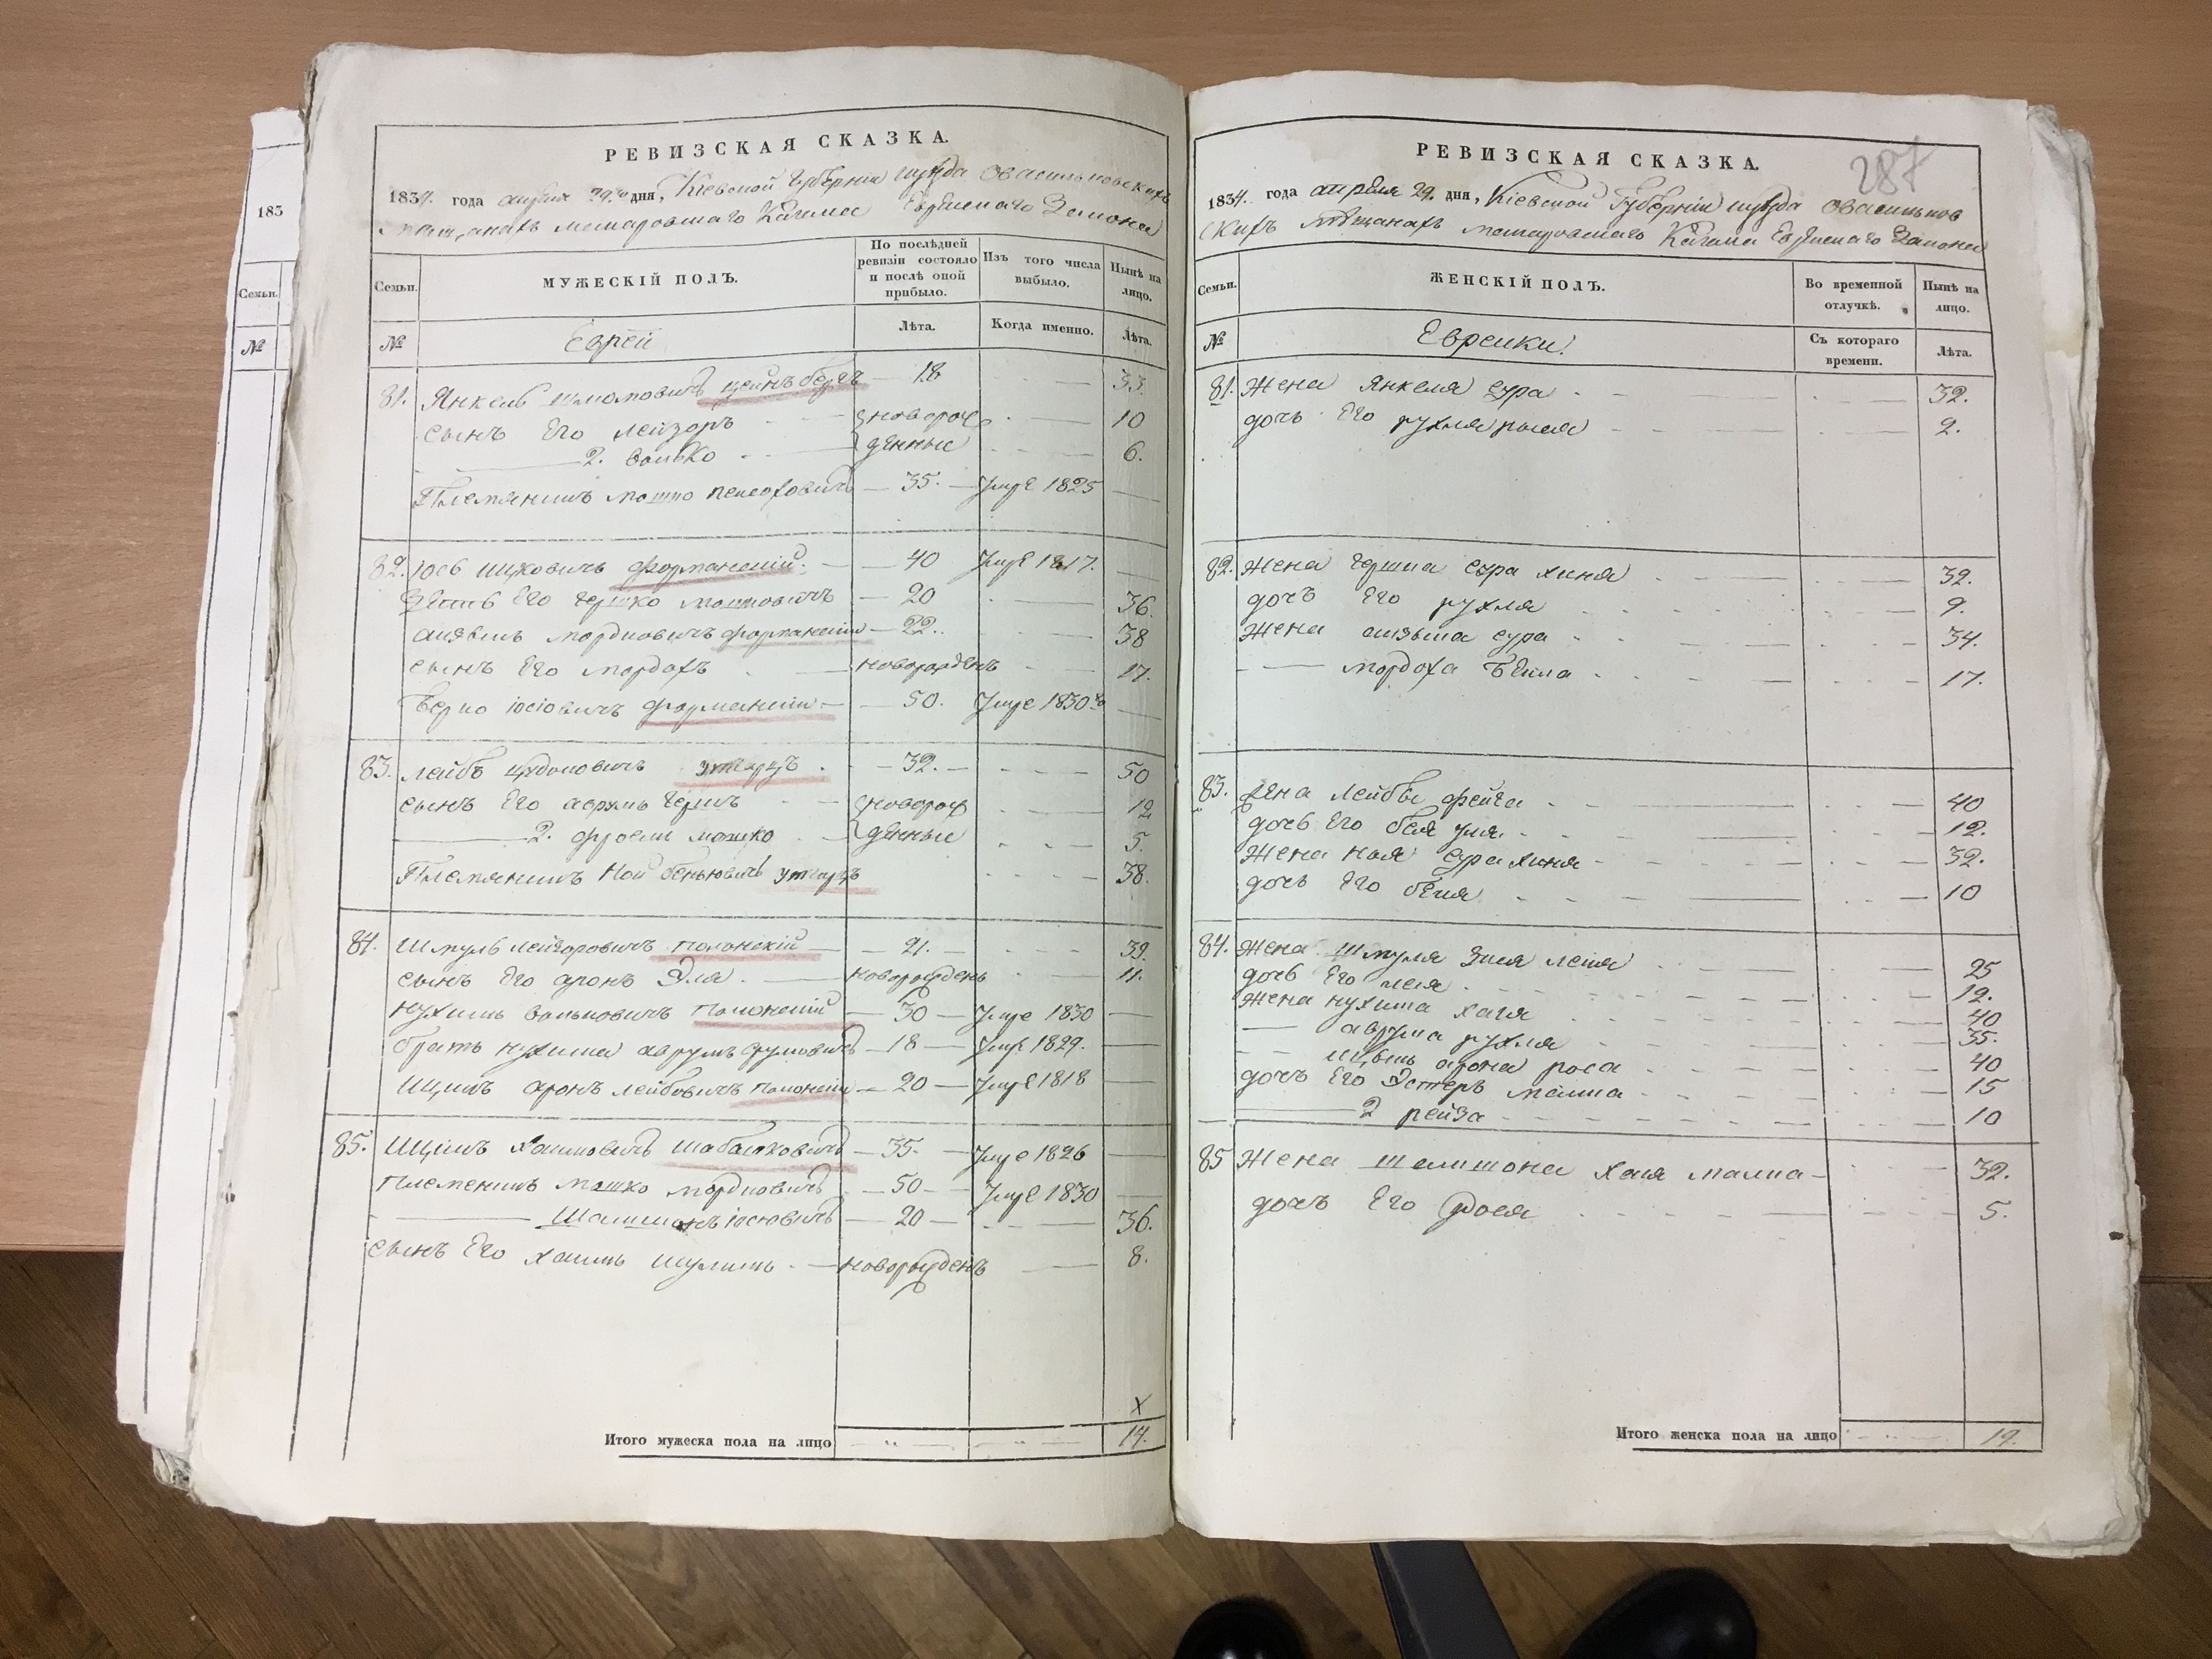 183
Семьи.
№
РЕВИЗСКАЯ СКАЗКА.
1834. года апреля 29го дня, Кіевской Губерніи уѣзда о васильковскихъ
мѣщанахъ Кагала Еврейскаго Закона
Семьи.
МУЖЕСКІЙ ПОЛЪ.
По послѣдней ревизіи состояло и послѣ оной прибыло.
Изъ того числа выбыло.
Нынѣ на лицо.
№
Еврей
Лѣта.
Когда именно.
Лѣта.
81. Янкель Шломовичъ — 18 — 33.
сынъ Его Лейзоръ новорож 10
2. Волько денные 6.
Племяникъ Мошко — 35. — Умре 1825 —
82. Іось Ицковичъ — 40 Умре 1817. —
Его Гершко Мошковичъ — 20 — 36.
Мордковичъ — 22. — 38
сынъ Его Мордохъ новорожденъ — 17.
Берко Іосіовичъ — 50. Умре 1830го —
83. Лейбъ — 32. — 50
сынъ Его Аврумъ Гершъ новорож 12
2. Фроемъ Мошко денные 5.
Племяникъ Ной Беньювичъ 38.
84. Шмуль Лейзоровичъ Полонскій — 21. — 39.
сынъ Его Аронъ Эля. — новорожденъ — 11.
Нухимъ Вольковичъ Полонскій — 30 — Умре 1830 —
братъ Нухима Аврумъ Срулювичъ — 18 — Умре 1829. —
Аронъ Лейбовичъ Полонскій — 20 — Умре 1818 —
85. Хаимовичъ — 35. — Умре 1826 —
Племеникъ Мошко Мордковичъ — 50 — Умре 1830 —
Шамшонъ Іосіовичъ — 20 — 36.
сынъ Его Хаимъ — новорожденъ — 8.
х
Итого мужеска пола на лицо — „ — — „ — 14.
РЕВИЗСКАЯ СКАЗКА.
287
1834. года апреля 29. дня, Кіевской Губерніи уѣзда о васильков
скихъ мѣщанахъ Кагала Еврейскаго Закона
Семьи.
ЖЕНСКІЙ ПОЛЪ.
Во временной отлучкѣ.
Нынѣ на лицо.
№
Еврейки.
Съ котораго времени.
Лѣта.
81. Жена Янкеля Сура 32.
дочь Его Рухля 9.
82. Жена Герша Сура Хиня 32.
дочь Его Рухля 9.
Жена Сура 34.
— Мордоха Бейла 17.
83. Жена Лейбы Фейга 40
дочь Его 12.
Жена Ноя Сура Хиня 32.
дочь Его 10
84. Жена Шмуля 25
дочь Его Лея 12.
Жена Нухима Хая 40
— Аврума Рухля 35.
Арона Роса 40
дочь Его Эстеръ Малка 15
2 Рейза 10
85 Жена Шамшона Хая Малка — 32.
дочь Его 5.
Итого женска пола на лицо — „ — 19.